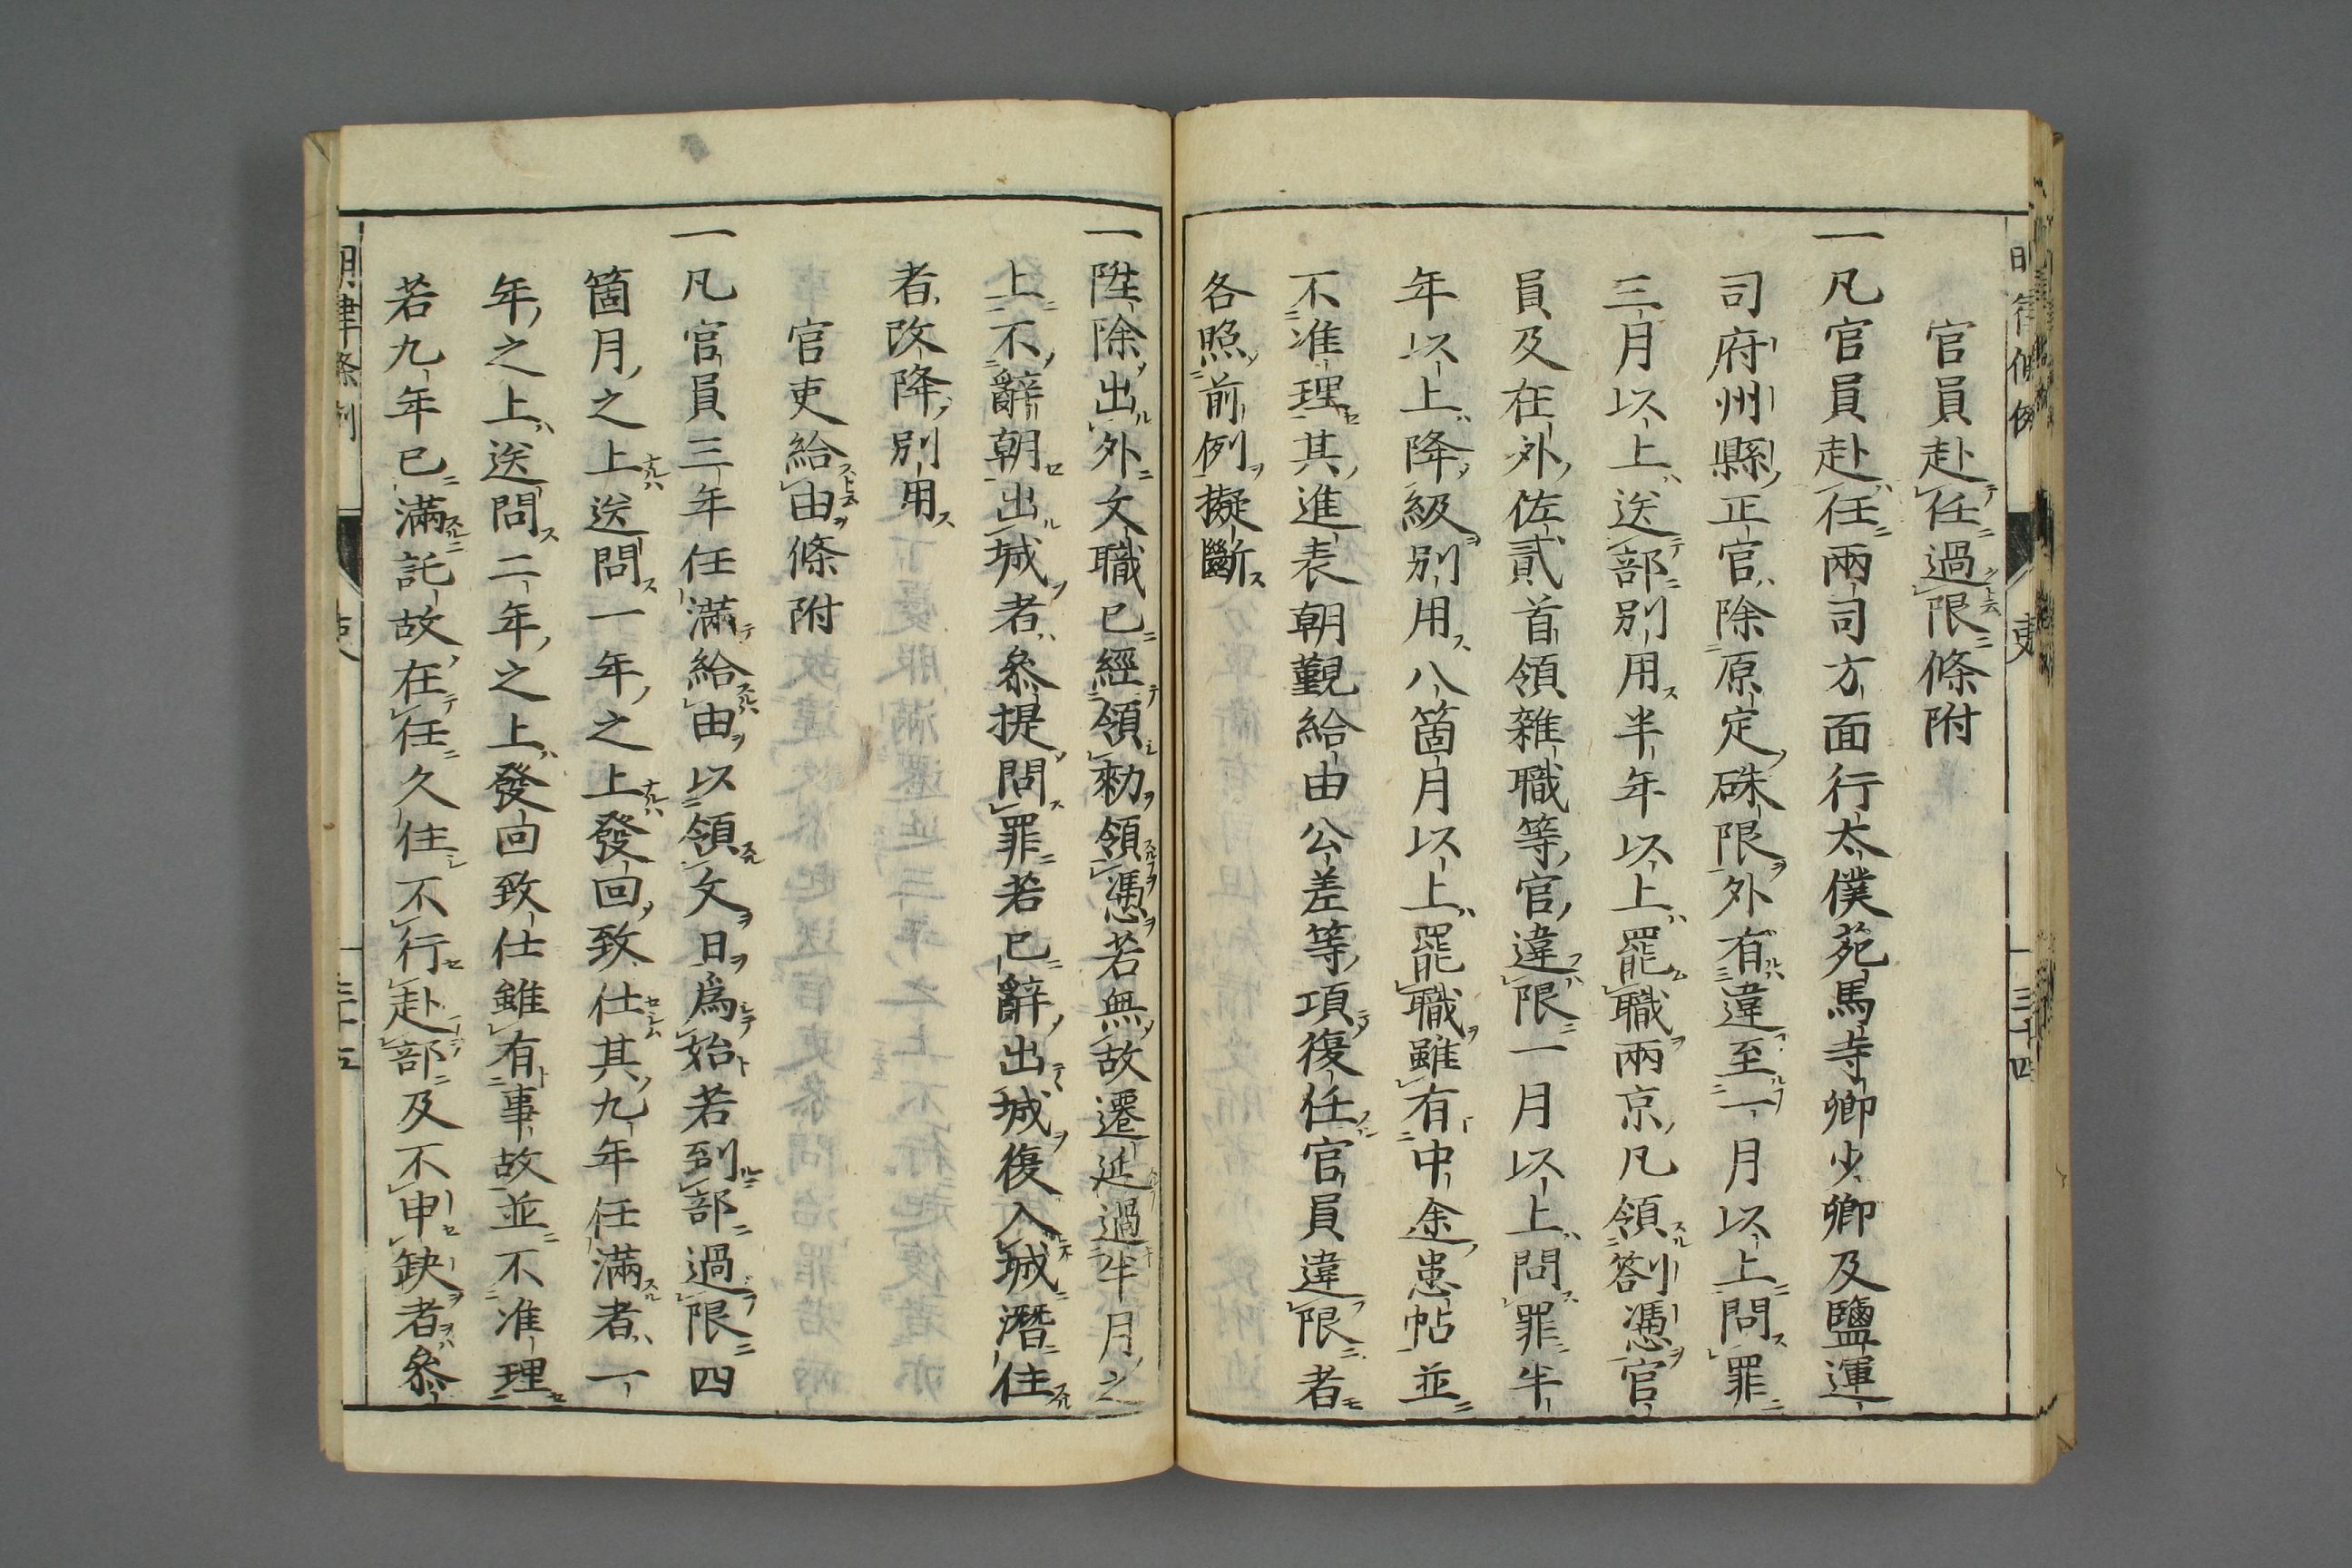 官員赴任過限條附
一凡官員赴任兩司方面行太僕苑馬寺卿少卿及鹽運
司府州縣正官除原定硃限外有違至一月以上問罪
三月以上送部別用半年以上罷職兩京凡領劄憑官
員及在外佐貳首領雜職等官違限一月以上問罪半
年以上降級別用八箇月以上罷職雖有中途患帖並
不准理其進表朝覲給由公差等項復任官員違限者
各照前例擬斷
一陞除出外文職已經領勅領憑若無故遷延過半月之
上不辭朝出城者參提問罪若已辭出城復入城潛住
者改降別用
官吏給由條附
一凡官員三年任滿給由以領文日為始若到部過限四
箇月之上送問一年之上發回致仕其九年任滿者一
年之上送問二年之上發回致仕雖有事故並不准理
若九年已滿託故在任久住不行赴部及不申缺者參
明律條例